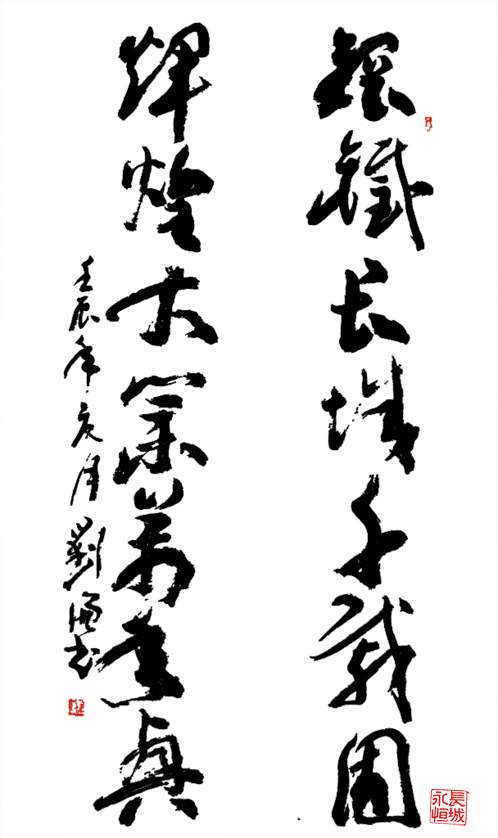 鋼鐵长城千載固
輝煌大業萬年興
壬辰年亥月劉书
長城永恒